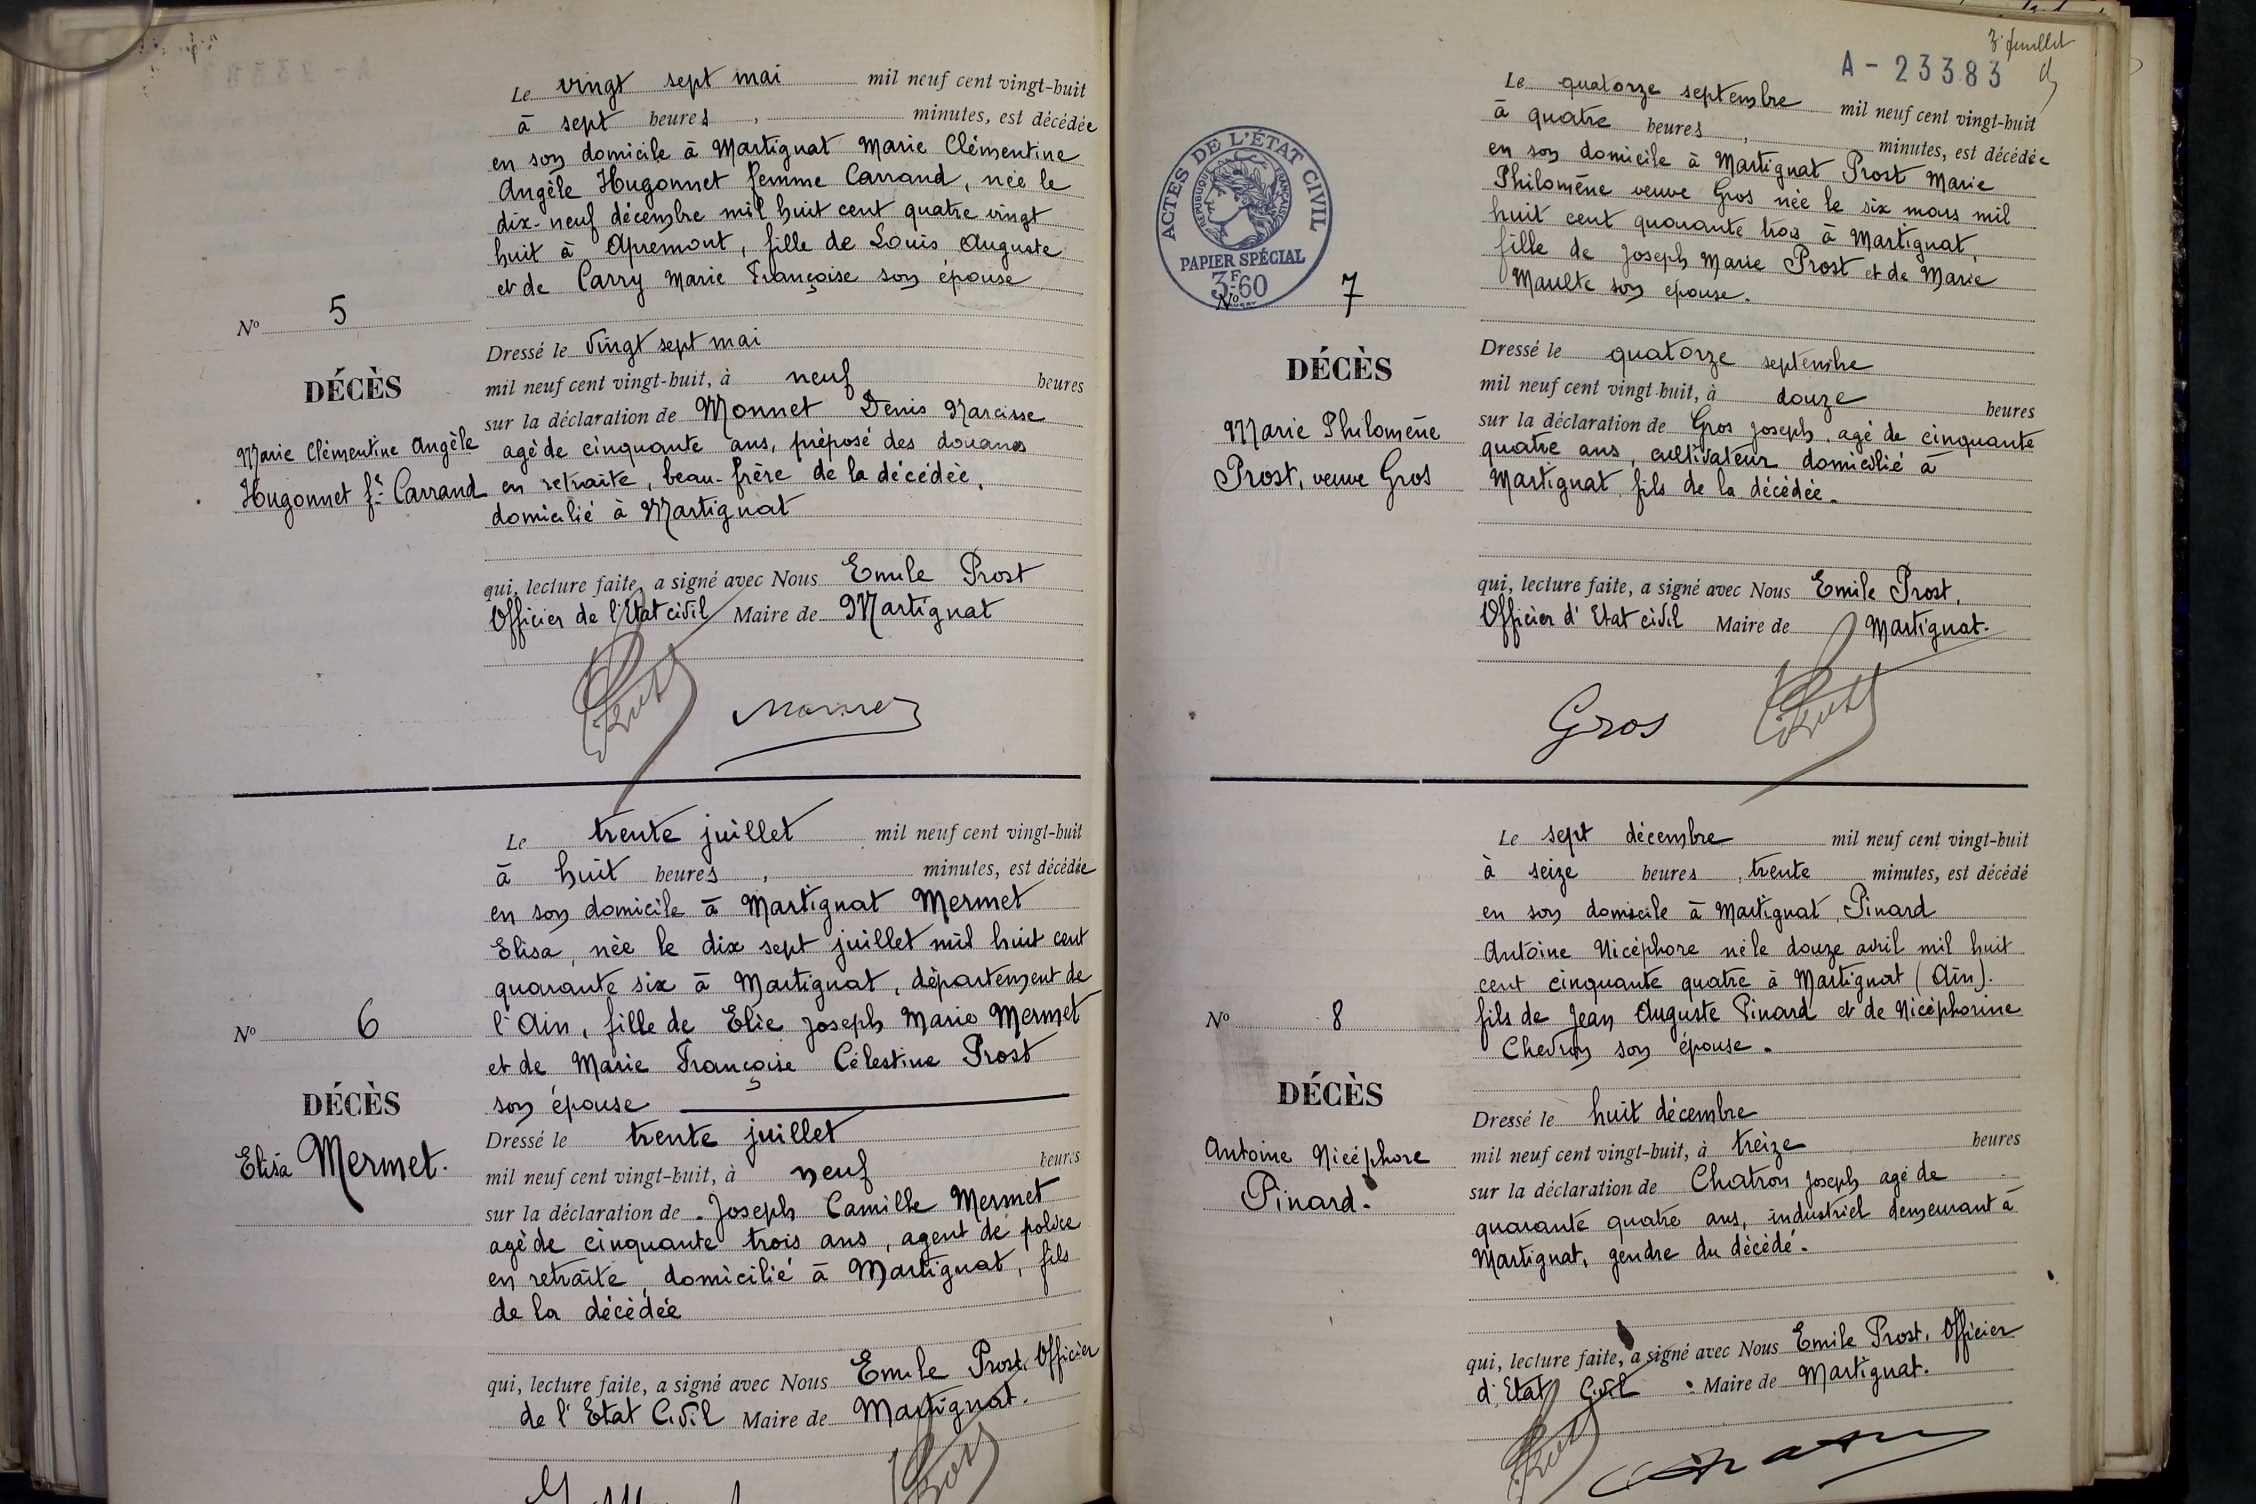 Le vingt sept mai mil neuf cent vingt-huit
à sept heures, minutes, est décédée
en son domicile à Martignat Marie Clémentine
Angèle Hugonnet femme Carrand, née le
dix-neuf décembre mil huit cent quatre vingt
huit à Apremont, fille de Louis Auguste
et de Carry Marie Françoise son épouse
No 5
DÉCÈS
Marie Clémentine Angèle
Hugonnet fe Carrand
Dressé le vingt sept mai
mil neuf cent vingt-huit, à neuf heures
sur la déclaration de Monnet Denis Narcisse
agé de cinquante ans, préposé des douanes
en retraite, beau-frère de la décédée,
domicilié à Martignat
qui, lecture faite, a signé avec Nous Emile Prost
Officier de l'Etat civil Maire de Martignat
Le trente juillet mil neuf cent vingt-huit
à huit heures, minutes, est décédée
en son domicile à Martignat Mermet
Elisa, née le dix sept juillet mil huit cent
quarante six à Martignat, département de
l'Ain, fille de Elie Joseph Marie Mermet
et de Marie Françoise Célestine Prost
son épouse
No 6
DÉCÈS
Elisa Mermet.
Dressé le trente juillet
mil neuf cent vingt-huit, à neuf heures
sur la déclaration de Joseph Camille Mermet
agé de cinquante trois ans, agent de police
en retraite, domicilié à Martignat, fils
de la décédée
qui, lecture faite, a signé avec Nous Emile Prost, Officier
de l'Etat Civil Maire de Martignat.
3e feuillet
A - 23383
ACTES DE L'ÉTAT CIVIL
RÉPUBLIQUE FRANÇAISE
PAPIER SPÉCIAL
3F60
Le quatorze septembre mil neuf cent vingt-huit
à quatre heures, minutes, est décédée
en son domicile à Martignat Prost Marie
Philomène veuve Gros née le six mars mil
huit cent quarante trois à Martignat,
fille de Joseph Marie Prost et de Marie
son épouse.
No 7
DÉCÈS
Marie Philomène
Prost, veuve Gros
Dressé le quatorze septembre
mil neuf cent vingt-huit, à douze heures
sur la déclaration de Gros Joseph, agé de cinquante
quatre ans, cultivateur domicilié à
Martignat, fils de la décédée.
qui, lecture faite, a signé avec Nous Emile Prost,
Officier d'Etat civil Maire de Martignat.
Gros
Le sept décembre mil neuf cent vingt-huit
à seize heures, trente minutes, est décédé
en son domicile à Martignat, Pinard
Antoine Nicéphore né le douze avril mil huit
cent cinquante quatre à Martignat (Ain).
fils de Jean Auguste Pinard et de Nicéphorine
Chevron son épouse.
No 8
DÉCÈS
Antoine Nicéphore
Pinard.
Dressé le huit décembre
mil neuf cent vingt-huit, à treize heures
sur la déclaration de Chatron Joseph agé de
quarante quatre ans, industriel demeurant à
Martignat, gendre du décédé.
qui, lecture faite, a signé avec Nous Emile Prost, Officier
d'Etat Civil Maire de Martignat.